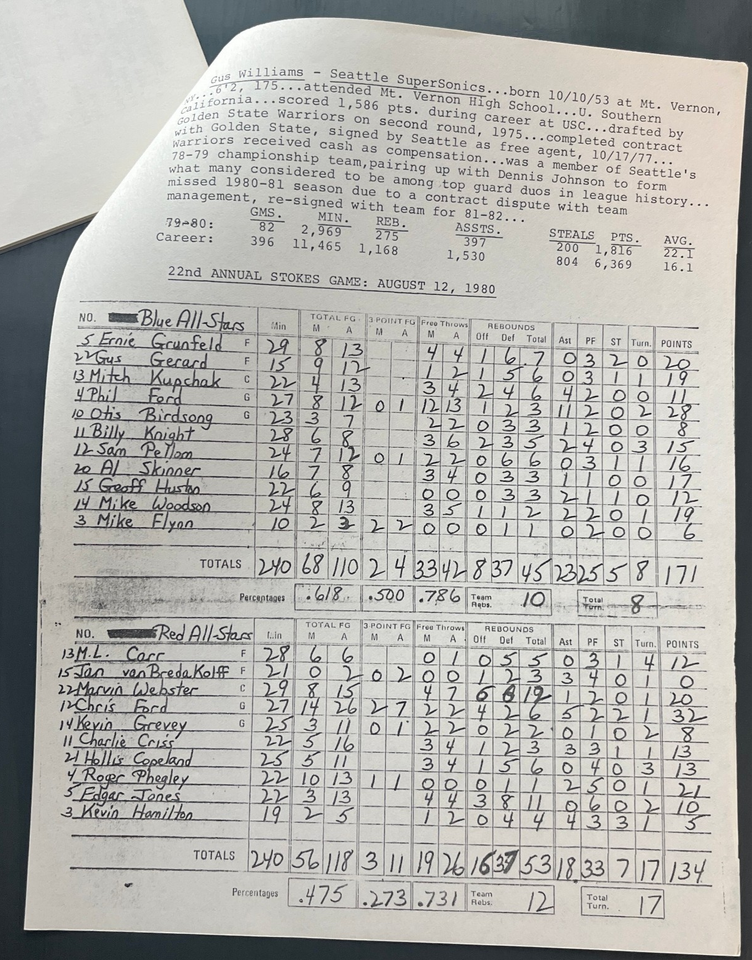 Gus Williams - Seattle SuperSonics...born 10/10/53 at Mt. Vernon,
NY...6'2, 175...attended Mt. Vernon High School...U. Southern
California...scored 1,586 pts. during career at USC...drafted by
Golden State Warriors on second round, 1975...completed contract
with Golden State, signed by Seattle as free agent, 10/17/77...
Warriors received cash as compensation...was a member of Seattle's
78-79 championship team, pairing up with Dennis Johnson to form
what many considered to be among top guard duos in league history...
missed 1980-81 season due to a contract dispute with team
management, re-signed with team for 81-82...
GMS. MIN. REB. ASSTS. STEALS PTS. AVG.
79-80: 82 2,969 275 397 200 1,816 22.1
Career: 396 11,465 1,168 1,530 804 6,369 16.1
22nd ANNUAL STOKES GAME: AUGUST 12, 1980
NO. Blue All-Stars Min TOTAL FG M A 3 POINT FG M A Free Throws M A REBOUNDS Off Def Total Ast PF ST Turn. POINTS
5 Ernie Grunfeld F 29 8 13 4 4 1 6 7 0 3 2 0 20
22 Gus Gerard F 15 9 12 1 2 1 5 6 0 3 1 1 19
13 Mitch Kupchak C 22 4 13 3 4 2 4 6 4 2 0 0 11
4 Phil Ford G 27 8 12 0 1 12 13 1 2 3 11 2 0 2 28
10 Otis Birdsong G 23 3 7 2 2 0 3 3 1 2 0 0 8
11 Billy Knight 28 6 8 3 6 2 3 5 2 4 0 3 15
12 Sam Pellom 24 7 12 0 1 2 2 0 6 6 0 3 1 1 16
20 Al Skinner 16 7 8 3 4 0 3 3 1 1 0 0 17
15 Geoff Huston 22 6 9 0 0 0 3 3 2 1 1 0 12
14 Mike Woodson 24 8 13 3 5 1 1 2 2 2 0 1 19
3 Mike Flynn 10 2 3 2 2 0 0 0 1 1 0 2 0 0 6
TOTALS 240 68 110 2 4 33 42 8 37 45 23 25 5 8 171
Percentages .618 .500 .786 Team Rebs. 10 Total Turn. 8
NO. Red All-Stars Min TOTAL FG M A 3 POINT FG M A Free Throws M A REBOUNDS Off Def Total Ast PF ST Turn. POINTS
13 M.L. Carr F 28 6 6 0 1 0 5 5 0 3 1 4 12
15 Jan van Breda Kolff F 21 0 2 0 2 0 0 1 2 3 3 4 0 1 0
22 Marvin Webster C 29 8 15 4 7 6 6 12 1 2 0 1 20
12 Chris Ford G 27 14 26 2 7 2 2 4 2 6 5 2 2 1 32
14 Kevin Grevey G 25 3 11 0 1 2 2 0 2 2 0 1 0 2 8
11 Charlie Criss 22 5 16 3 4 1 2 3 3 3 1 1 13
21 Hollis Copeland 25 5 11 3 4 1 5 6 0 4 0 3 13
4 Roger Phegley 22 10 13 1 1 0 0 0 1 1 2 5 0 1 21
5 Edgar Jones 22 3 13 4 4 3 8 11 0 6 0 2 10
3 Kevin Hamilton 19 2 5 1 2 0 4 4 4 3 3 1 5
TOTALS 240 56 118 3 11 19 26 16 37 53 18 33 7 17 134
Percentages .475 .273 .731 Team Rebs. 12 Total Turn. 17